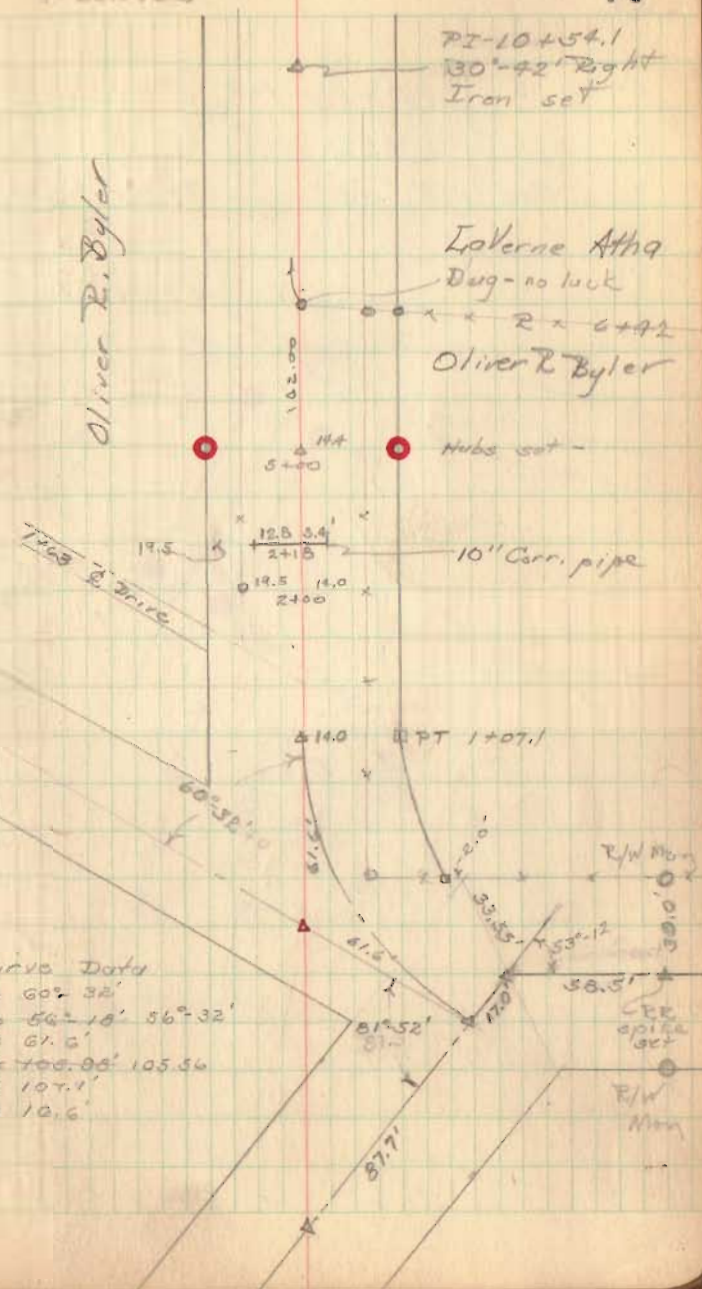 PI-10+54.1
30°-42' Right
Iron set
Oliver R. Byler
LaVerne Atha
Dug-no luck
6+42
Oliver R Byler
102.00
14.4
5+00
Hubs set -
12.8 3.4'
2+18
19.5
10" Corr. pipe
1+63 ¢ Drive
19.5 14.0
2+00
14.0
PT 1+07.1
60°-32'
61.5'
2.0'
R/W Mon
33.55'
53°-12
30.0'
61.6'
58.5'
17.0'
RR
spike
set
81°-52'
R/W
Mon
87.7'
Curve Data
60°-32'
56°-18' 56°-32'
61.6'
105.56
107.1'
10.6'